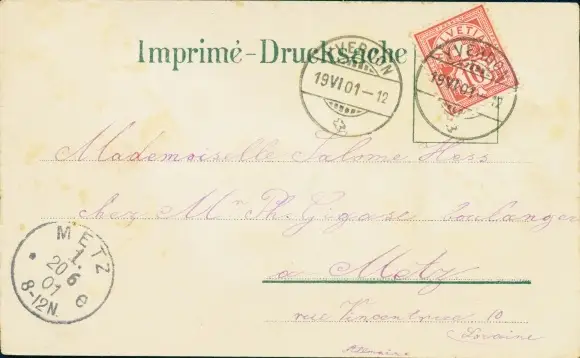 Imprimé - Drucksache
YVERDON
19 VI 01 — 12
HELVETIA
10
YVERDON
19 VI 01 — 12
Mademoiselle Salome Hess
chez Mr Ph. Gigase boulanger
à Metz
rue 10
Lorraine
Allemaine
METZ
1.
20 6
01
8-12N.
e